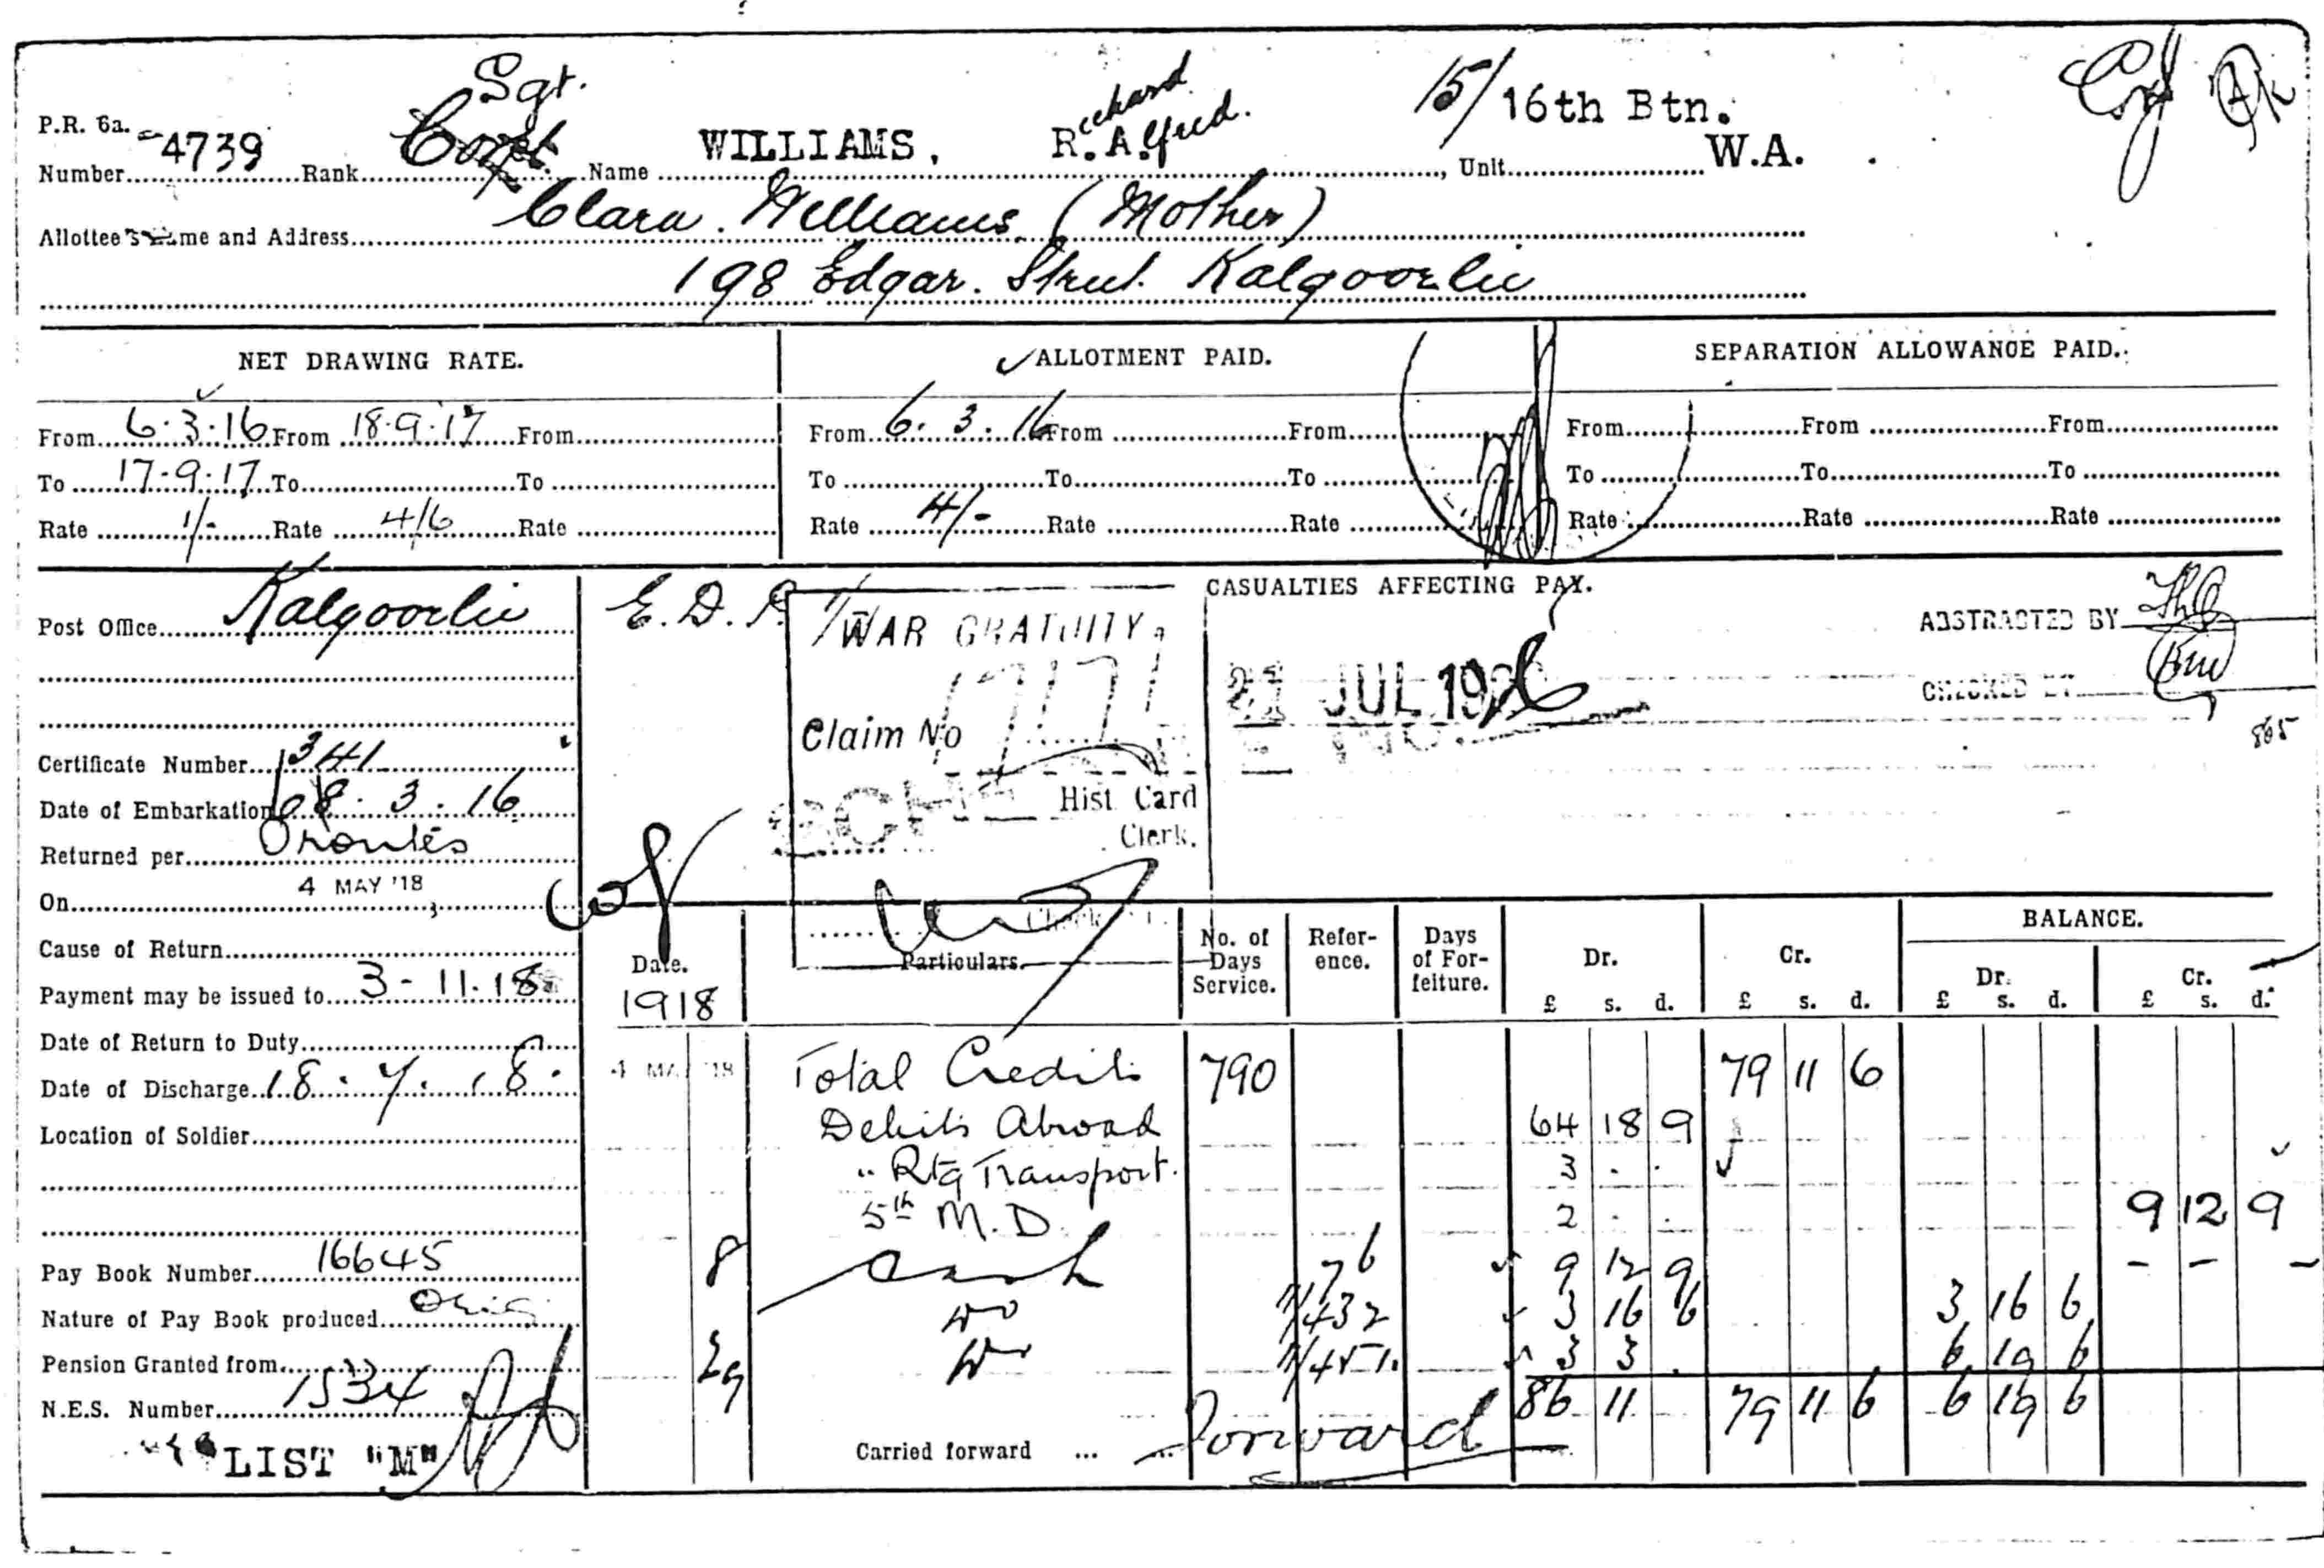 Sgt.
P.R. 6a.
Number 4739 Rank Corpl. Name WILLIAMS, Richard Alfred. Unit 15/16th Btn. W.A.
Allottee's Name and Address Clara Williams (Mother)
198 Edgar. Street. Kalgoorlie
NET DRAWING RATE. ALLOTMENT PAID. SEPARATION ALLOWANCE PAID.
From 6.3.16 From 18.9.17 From From 6.3.16 From From From From From
To 17.9.17 To To To To To To To To
Rate 1/- Rate 4/6 Rate Rate 4/- Rate Rate Rate Rate Rate
Post Office Kalgoorlie
E.D.P.
WAR GRATUITY
Claim No
Hist. Card
Clerk.
CASUALTIES AFFECTING PAY.
21 JUL 192
ABSTRACTED BY
CHECKED BY
865
Certificate Number 341
Date of Embarkation 8.3.16
Returned per Orontes
On 4 MAY '18
Cause of Return
Payment may be issued to 3-11.18
Date of Return to Duty
Date of Discharge 18.7.18.
Location of Soldier
Pay Book Number 16645
Nature of Pay Book produced Orig
Pension Granted from
N.E.S. Number 1534
LIST "M"
Date. Particulars. No. of Days Service. Reference. Days of Forfeiture. Dr. Cr. BALANCE.
Dr. Cr.
£ s. d. £ s. d. £ s. d. £ s. d.
1918
4 MAY '18 Total Credits 790 79 11 6
Debits Abroad 64 18 9
" Rtg Transport. 3 . .
5th M.D. 2 . . 9 12 9
8 Cash 76 9 12 9 - - -
Do 432 3 16 6 3 16 6
29 Do 451 3 3 . 6 19 6
86 11 79 11 6 6 19 6
Carried forward ... ... Forward